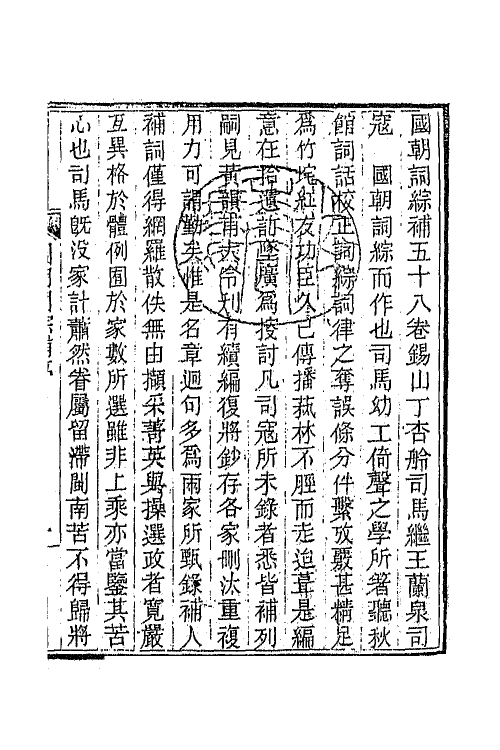 國朝詞綜補五十八卷錫山丁杏舲司馬繼王蘭泉司
寇　國朝詞綜而作也司馬幼工倚聲之學所箸聽秋
館詞話校正詞綜詞律之奪誤條分件繫攷覈甚精足
爲竹垞紅友功臣久已傳播蓺林不脛而走迨葺是編
意在拾遺訂墜廣爲搜討凡司寇所未錄者悉皆補列
嗣見黃韻甫大令刋有續編復將鈔存各家刪汰重複
用力可謂勤矣惟是名章迥句多爲兩家所甄錄補人
補詞僅得網羅散佚無由擷采菁英與操選政者寬嚴
互異格於體例囿於家數所選雖非上乘亦當鑒其苦
心也司馬旣没家計蕭然眷屬留滯閩南苦不得歸將